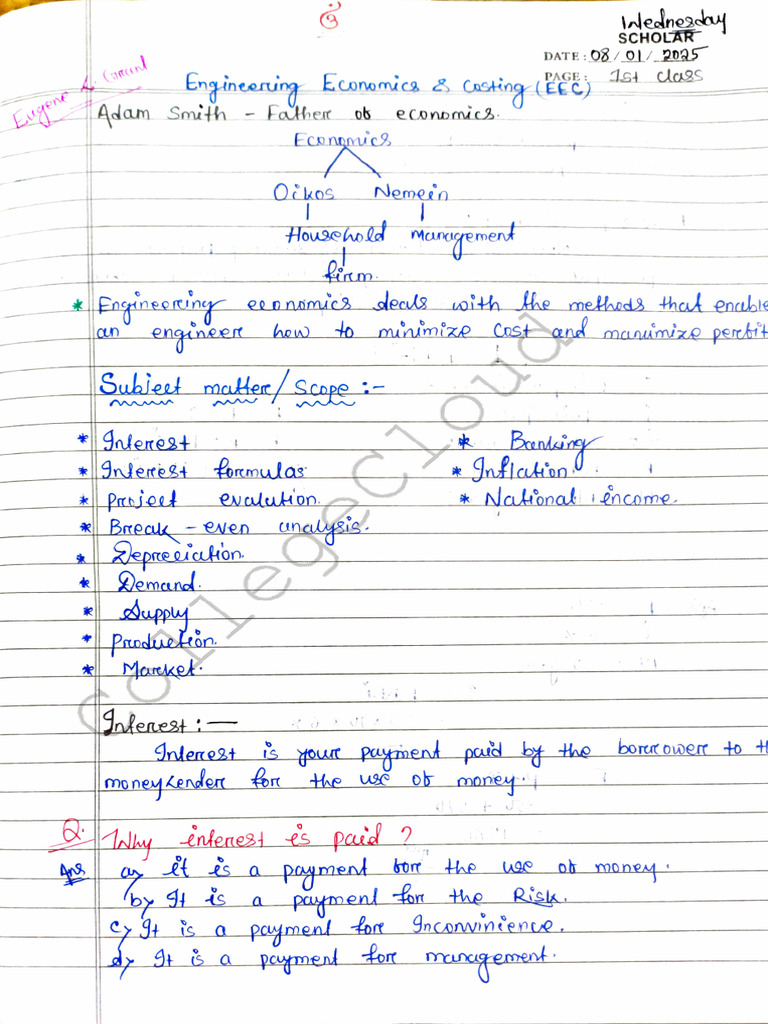 ॐ
Wednesday
SCHOLAR
DATE: 08/01/2025
PAGE: 1st class
Eugene L.
Engineering Economics & Costing (EEC)
Adam Smith - Father of economics.
Economics
Oikos Nemein
Household management
firm.
* Engineering economics deals with the methods that enable
an engineer how to minimize cost and
Subject matter/Scope :-
* Interest * Banking
* Interest formulas * Inflation
* project evalution. * National income.
* Break-even analysis.
* Depreciation.
* Demand.
* Supply
* production.
* Market.
Interest :-
Interest is your payment paid by the borrower to th
moneylender for the use of money.
Q. Why interest is paid ?
Ans a) it is a payment for the use of money.
b) It is a payment for the Risk.
c) It is a payment for Inconvinience.
d) It is a payment for management.
CollegeCloud